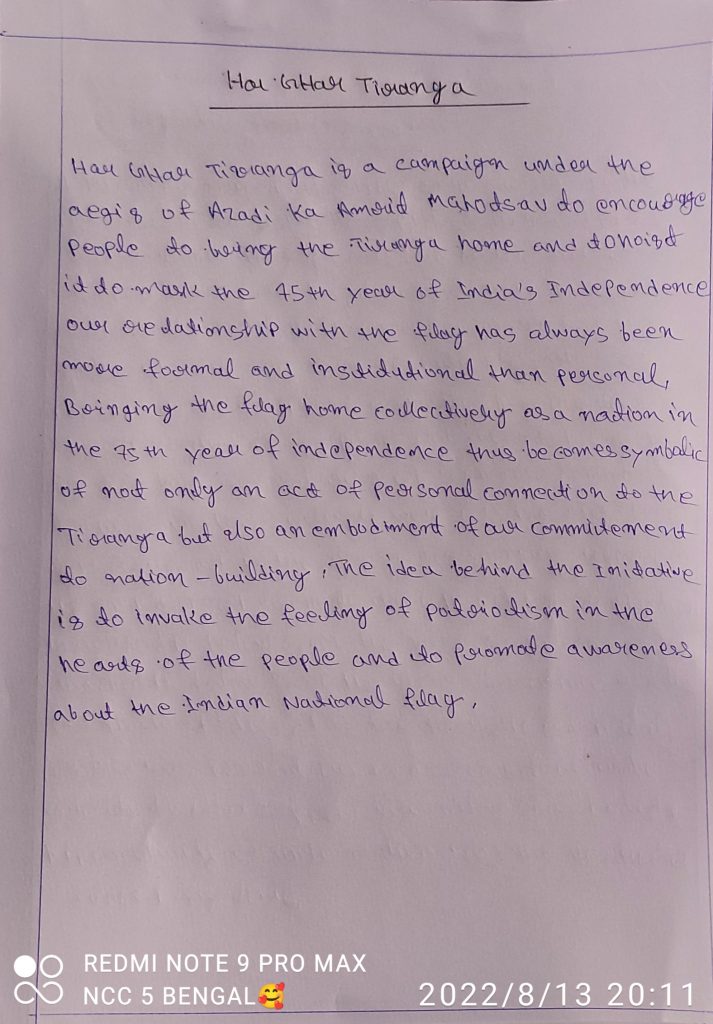 Har Ghar Tiranga
Har Ghar Tiranga is a campaign under the
aegis of Azadi Ka Amrid Mahodsav to encourage
people to bring the Tiranga home and to hoist
it to mark the 75th year of India's Independence
our relationship with the flag has always been
more formal and institutional than personal,
Bringing the flag home collectively as a nation in
the 75th year of independence thus becomes symbolic
of not only an act of personal connection to the
Tiranga but also an embodiment of our commitement
to nation - building. The idea behind the Initative
is to invake the feeling of patriotism in the
hearts of the people and to promate awareness
about the Indian National flag.
REDMI NOTE 9 PRO MAX
NCC 5 BENGAL🥰
2022/8/13 20:11